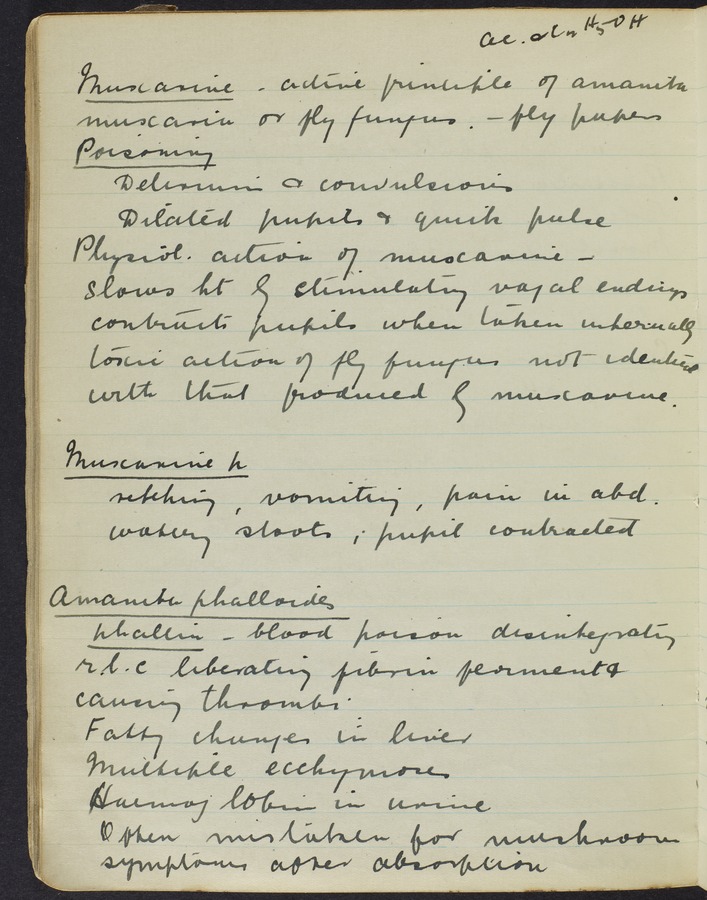 Muscarine - active principle of amanita
muscaria or fly fungus. - fly papers
Poisoning
Delirium & convulsions
Dilated pupils & quick pulse
Physiol. action of muscarine -
slows ht by stimulating vagal endings
contracts pupils when taken internally
toxic action of fly fungus not identical
with that produced by muscarine.
Muscarine p
retching, vomiting, pain in abd.
watery stools; pupil contracted
Amanita phalloides
phallin - blood poison disintegrating
r.b.c liberating fibrin ferment &
causing thrombi.
Fatty changes in liver
Multiple ecchymoses
Haemoglobin in urine
Often mistaken for mushroom
symptoms after absorption